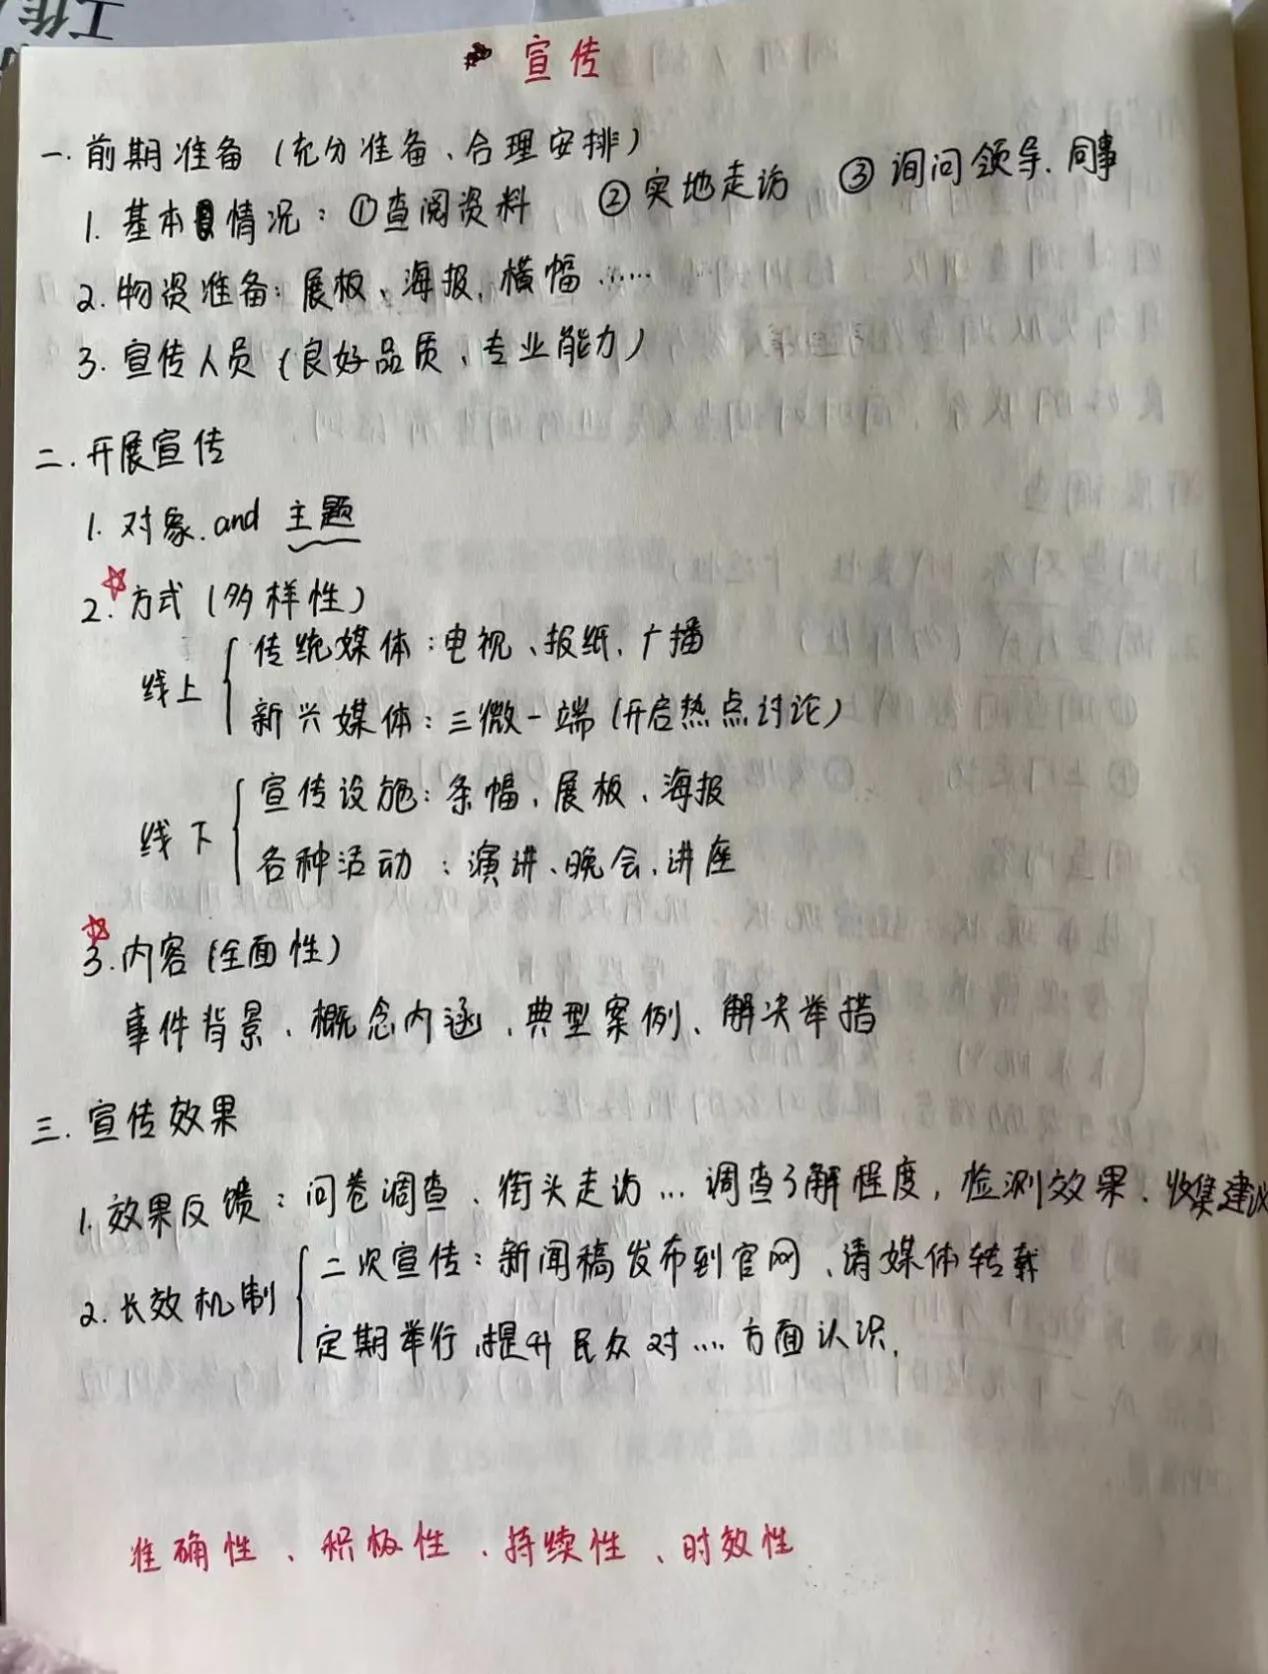 宣传
一.前期准备(充分准备、合理安排)
1.基本情况:①查阅资料 ②实地走访 ③询问领导.同事
2.物资准备:展板、海报、横幅……
3.宣传人员(良好品质、专业能力)
二.开展宣传
1.对象.and 主题
☆2.方式(多样性)
线上
传统媒体:电视、报纸、广播
新兴媒体:三微一端(开启热点讨论)
线下
宣传设施:条幅、展板、海报
各种活动:演讲、晚会、讲座
☆3.内容(全面性)
事件背景、概念内涵、典型案例、解决举措
三.宣传效果
1.效果反馈:问卷调查、街头走访…调查了解程度,检测效果、收集建议
2.长效机制
二次宣传:新闻稿发布到官网、请媒体转载
定期举行,提升民众对……方面认识.
准确性、积极性、持续性、时效性